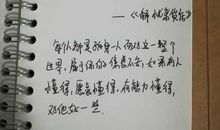 ——《解忧杂货店》
每个人都是孤身一人面对这一整个
世界，属于你的信息不多，如果有人
懂得，愿意懂得，有能力懂得，
对他好一点。